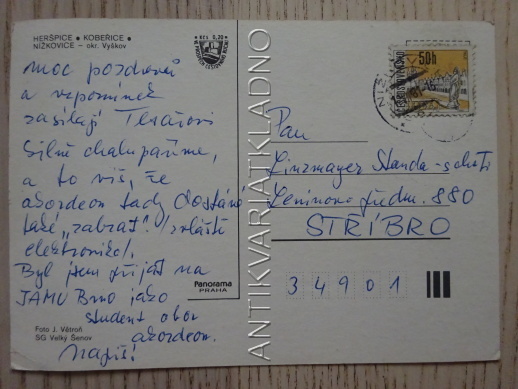 HERŠPICE • KOBEŘICE •
NÍZKOVICE – okr. Vyškov
Kčs 0,30
moc pozdravů
a vzpomínek
zasílají
Silně chalupaříme,
a to víš, že
akordeon tady dostává
také „zabrat". (zvláště
elektronika).
Byl jsem přijat na
JAMU Brno jako
student obor
akordeon.
Napiš!
Foto J. Větroň
SG Velký Šenov
Panorama
PRAHA
ANTIKVARIATKLADNO
50h
ČESKOSLOVENSKO
Pan
Linzmayer Standa
Leninova 880
STŘÍBRO
34901